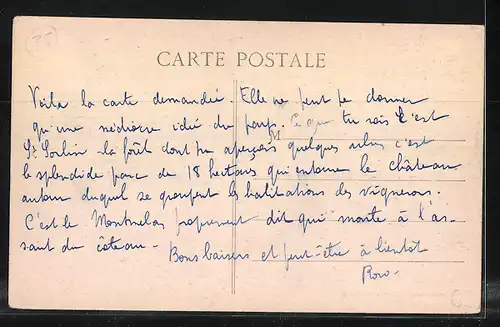 CARTE POSTALE
M
Voilà la carte demandée. Elle ne peut te donner
qu'une médiocre idée du pays. Ce que tu vois c'est
St Sorlin - la forêt dont tu aperçois quelques arbres c'est
le splendide parc de 18 hectares qui entoure le château
autour duquel se groupent les habitations des vignerons.
C'est le Montmelas proprement dit qui monte à l'as-
saut du coteau. -
Bons baisers et peut-être à bientôt